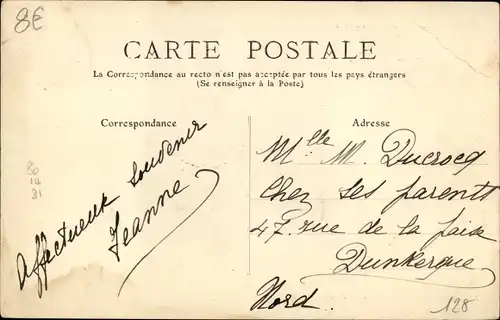 8€
CARTE POSTALE
La Correspondance au recto n'est pas acceptée par tous les pays étrangers
(Se renseigner à la Poste)
Correspondance
Adresse
80
14
31
Affectueux souvenir
Jeanne
Mlle M. Ducrocq
Chez ses parents
47. rue de la paix
Dunkerque
Nord.
128